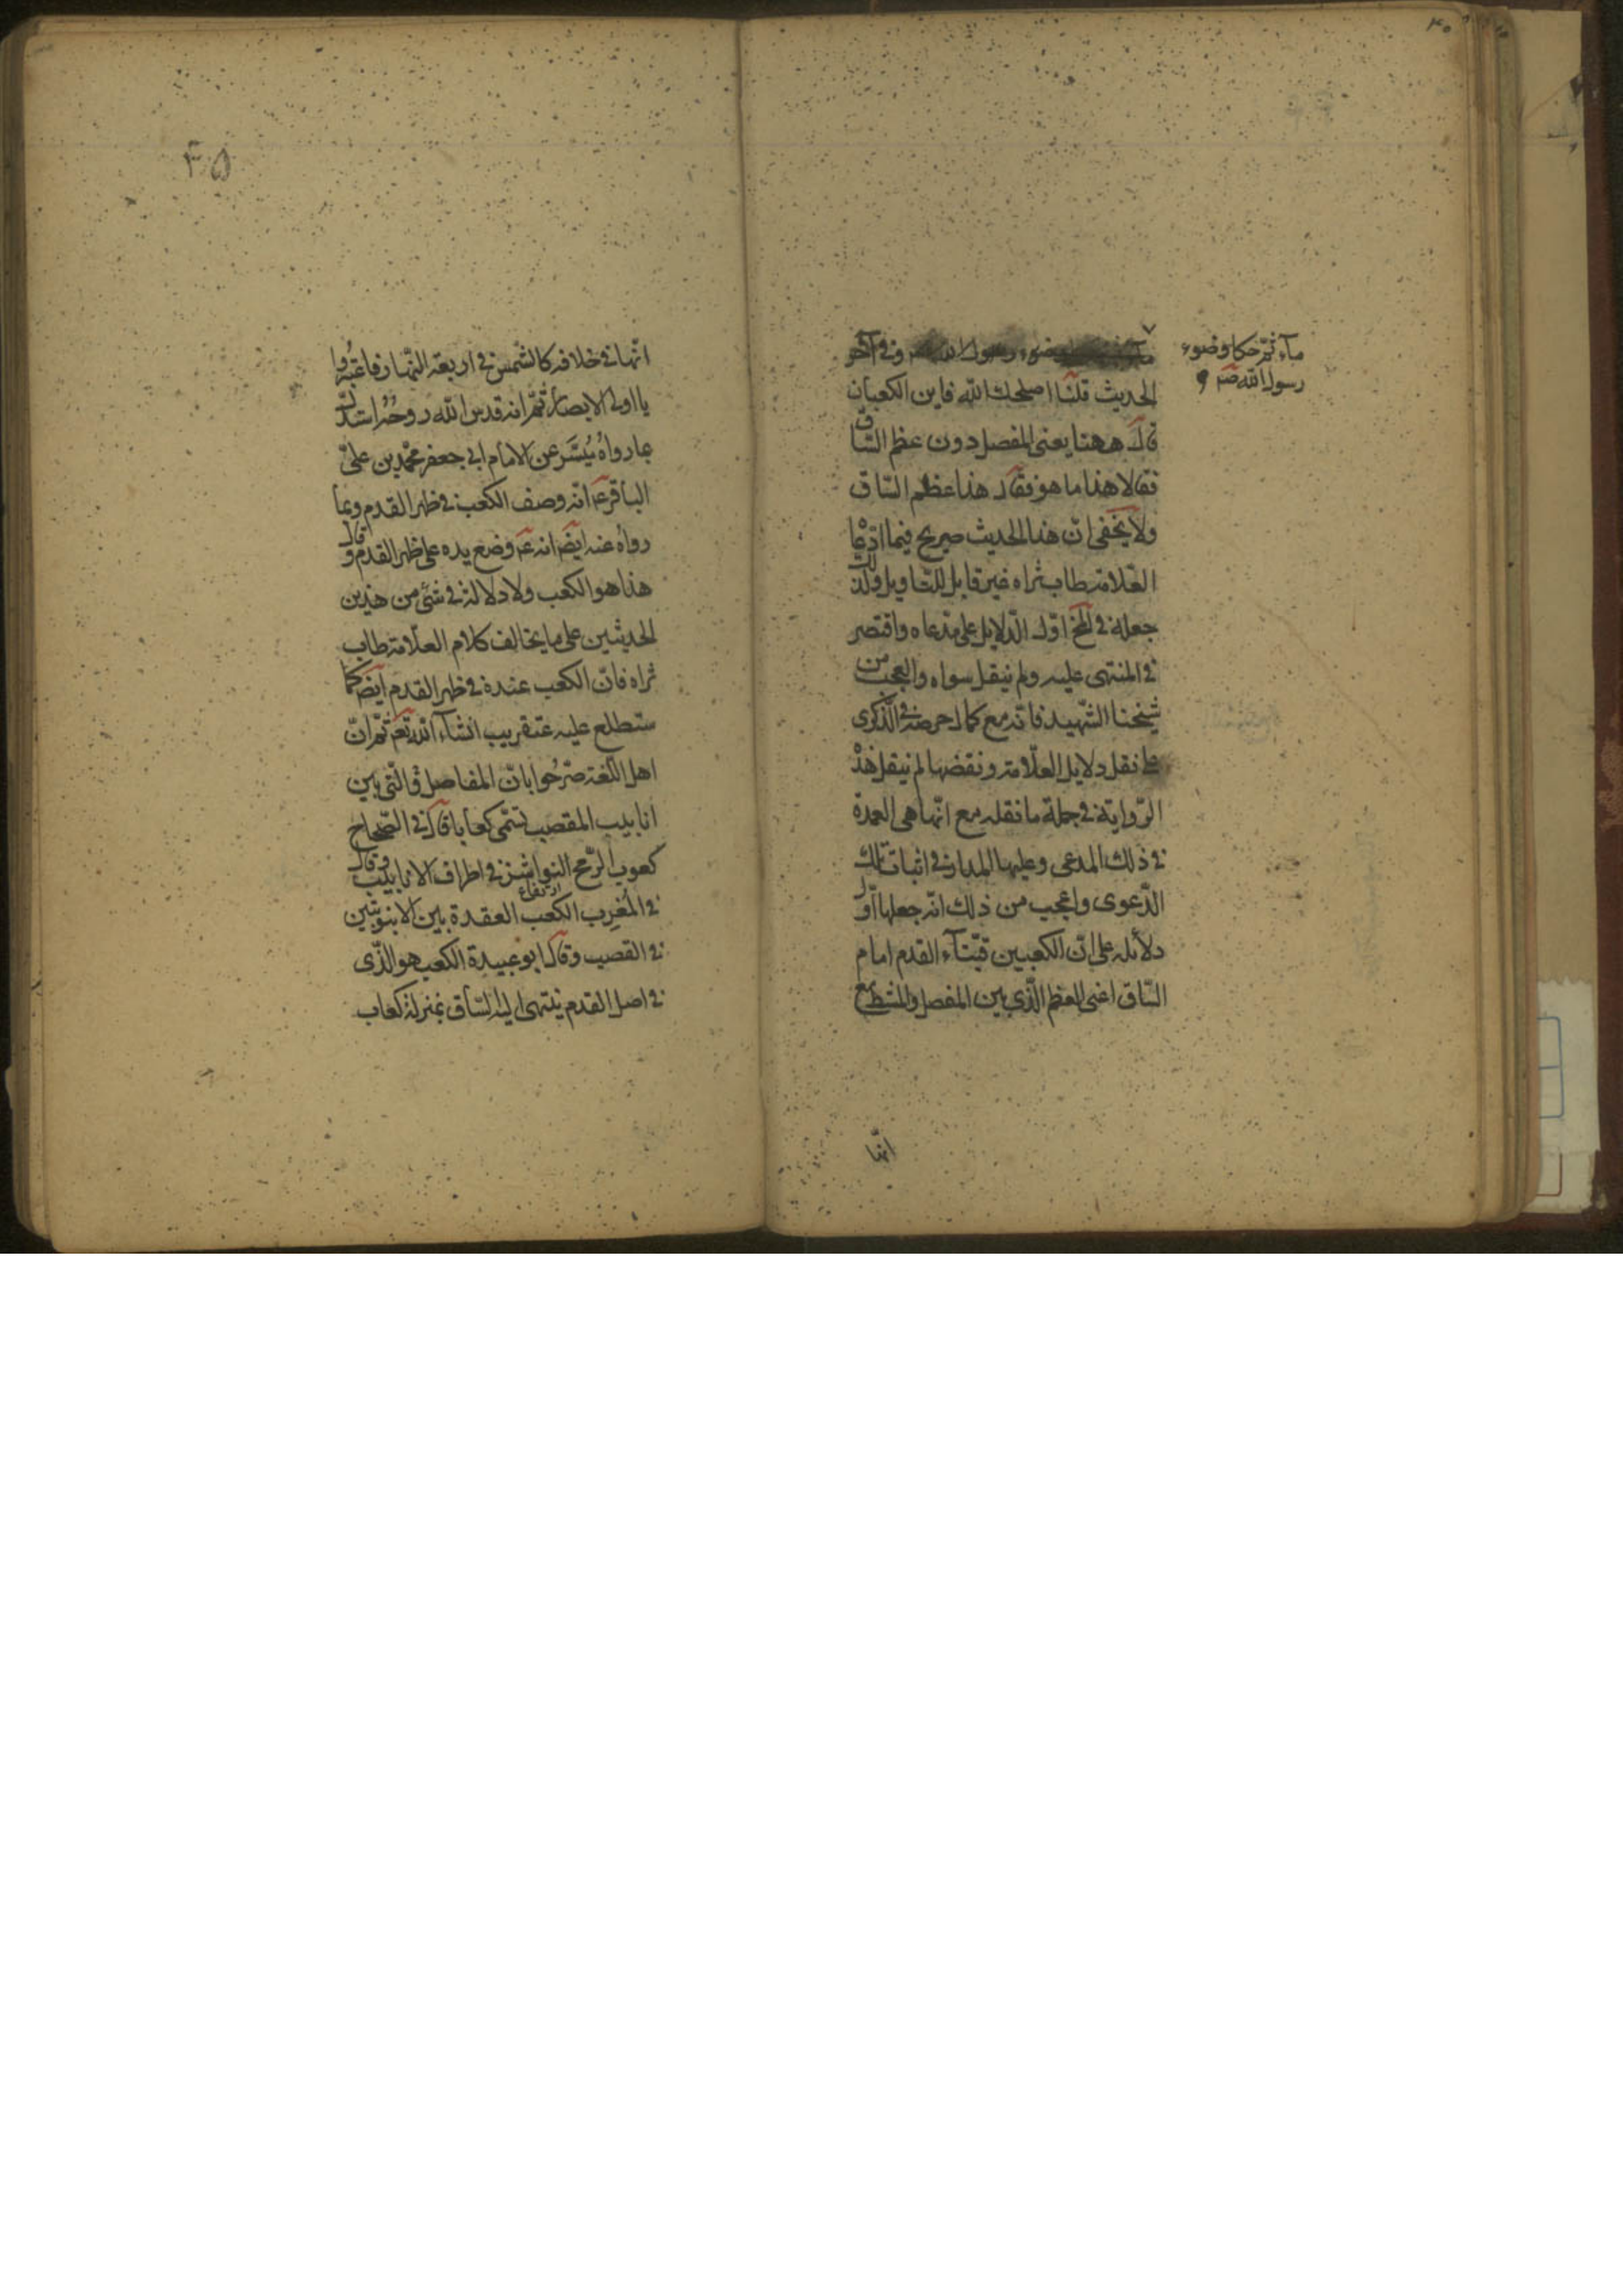 ۴۰
ماء ثم حكا وضوء
رسول الله صم و
وضوء رسول الله وفى آخر
الحديث قلنا اصلحك الله فاين الكعبان
قال ههنا يعنى المفصل دون عظم الساق
فقالا هذا ما هو فقال هذا عظم الساق
ولا يخفى ان هذا الحديث صريح فيما ادعا
العلامة طاب ثراه غير قابل للتاويل ولذلك
جعله فى اول الدلايل على مدعاه واقتصر
فى المنتهى عليه ولم ينقل سواه والعجب من
شيخنا الشهيد فانه مع كمال حرصه فى الذكرى
على نقل دلايل العلامة ونقضها لم ينقل هذ
الرواية فى جملة ما نقله مع انها هى العمدة
فى ذلك المدعى وعليها المدار فى اثبات تلك
الدعوى واعجب من ذلك انه جعلها اول
دلائله على ان الكعبين قبتآء القدم امام
الساق اعنى العظم الذى بين المفصل والمشط مع
انها
۴۵
انها فى خلافه كالشمس فى اربعة النهار فاعتبروا
يا اولى الابصار ثم انه قدس الله روحه استدل
بما رواه ميسر عن الامام ابى جعفر محمد بن على
الباقر ع انه وصف الكعب فى ظهر القدم وبما
رواه عنه ايضا انه ع وضع يده على ظهر القدم وقال
هذا هو الكعب ولا دلالة فى شئ من هذين
الحديثين على ما يخالف كلام العلامة طاب
ثراه فان الكعب عنده فى ظهر القدم ايضا كما
ستطلع عليه عنقريب انشاء الله تعم ثم ان
اهل اللغة صرحوا بان المفاصل التى بين
انابيب القصب تسمى كعابا قال فى الصحاح
كعوب الرمح النواشز فى اطراف الانابيب وقال
فى المغرب الكعب العقدة بين الانبوبتين
فى القصب وقال ابو عبيدة الكعب هو الذى
فى اصل القدم ينتهى اليه الساق بمنزلة كعاب